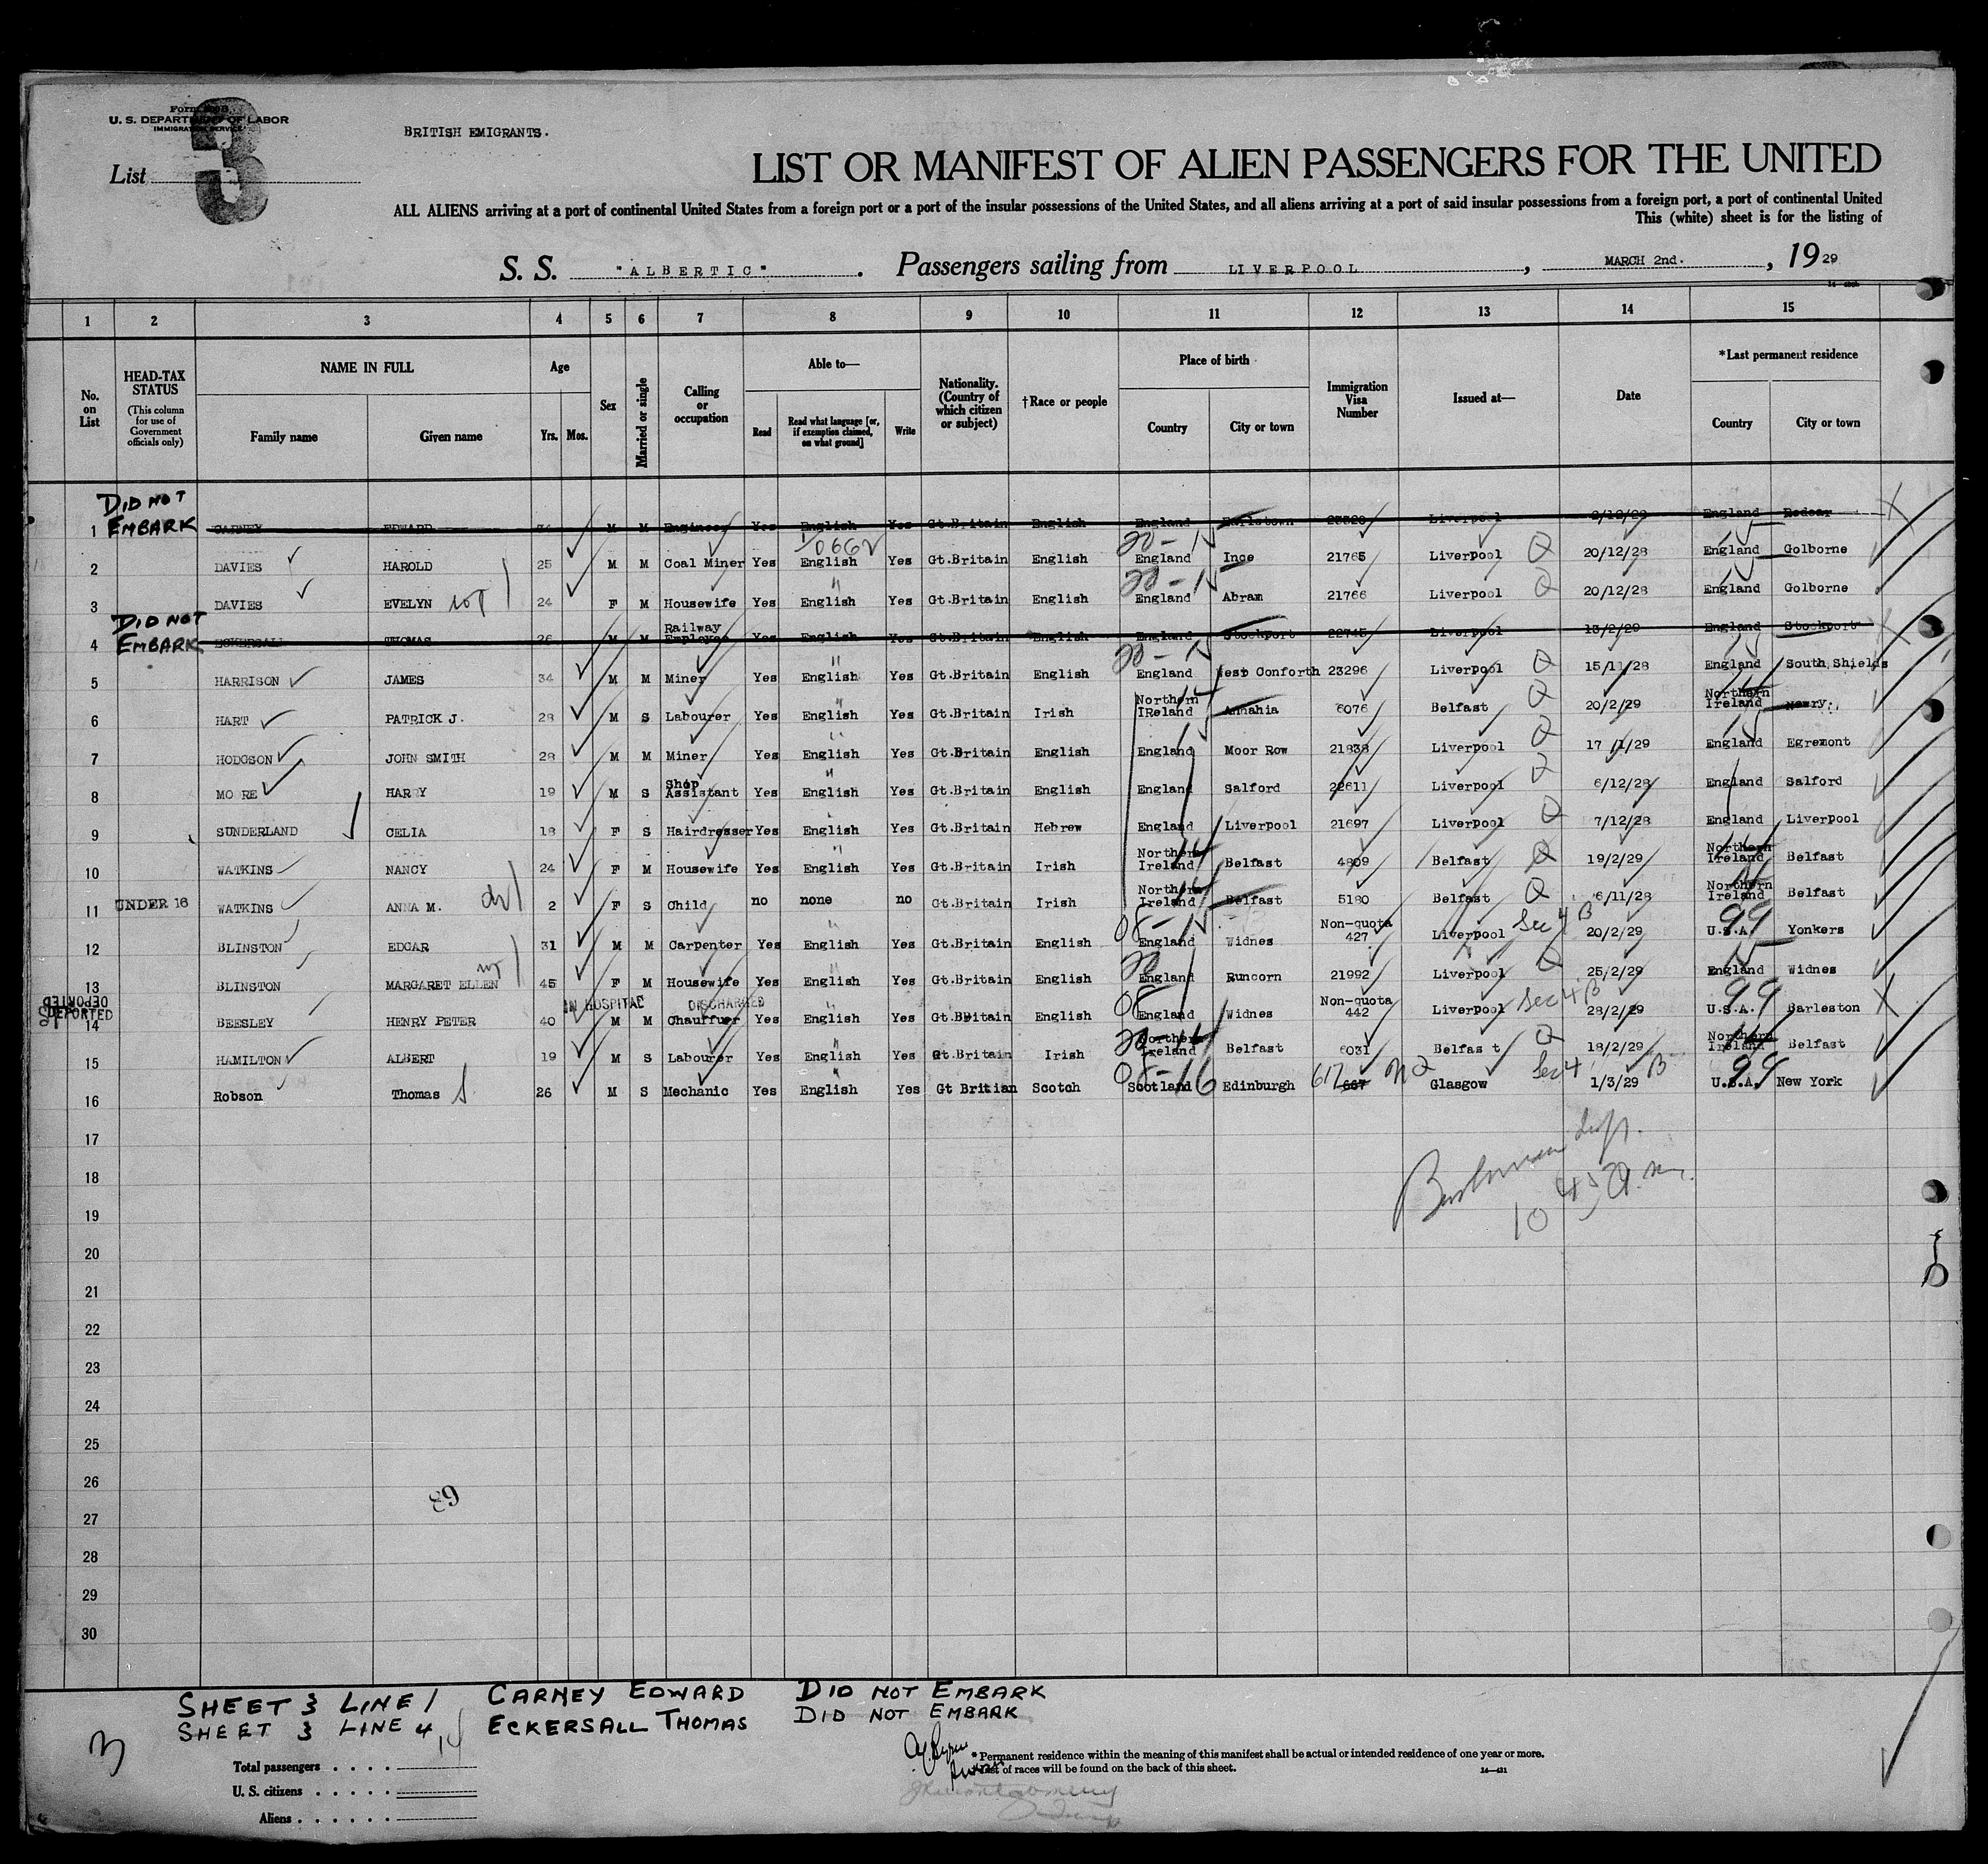 Form
U. S. DEPARTMENT OF LABOR
IMMIGRATION SERVICE
3
BRITISH EMIGRANTS.
List
LIST OR MANIFEST OF ALIEN PASSENGERS FOR THE UNITED
ALL ALIENS arriving at a port of continental United States from a foreign port or a port of the insular possessions of the United States, and all aliens arriving at a port of said insular possessions from a foreign port, a port of continental United
This (white) sheet is for the listing of
S. S. "ALBERTIC". Passengers sailing from LIVERPOOL, MARCH 2nd., 1929
1 2 3 4 5 6 7 8 9 10 11 12 13 14 15
No. on List
HEAD-TAX STATUS (This column for use of Government officials only)
NAME IN FULL
Family name Given name
Age
Yrs. Mos.
Sex
Married or single
Calling or occupation
Able to—
Read Read what language [or, if exemption claimed, on what ground] Write
Nationality. (Country of which citizen or subject)
†Race or people
Place of birth
Country City or town
Immigration Visa Number
Issued at—
Date
*Last permanent residence
Country City or town
1 DID NOT EMBARK CARNEY EDWARD M M Engineer Yes English Yes Gt.Britain English England Earlestown Liverpool England Redcar X
2 DAVIES HAROLD 25 M M Coal Miner Yes English Yes Gt.Britain English England Ince 21765 Liverpool Q 20/12/28 England Golborne
3 DAVIES EVELYN 24 F M Housewife Yes English " Yes Gt.Britain English England Abram 21766 Liverpool Q 20/12/28 England Golborne
4 DID NOT EMBARK ECKERSALL THOMAS 26 M M Railway Employee Yes English Yes Gt.Britain English England Stockport 22745 Liverpool 13/2/29 England Stockport X
5 HARRISON JAMES 34 M M Miner Yes English Yes Gt.Britain English England West Conforth 23296 Liverpool Q 15/11/28 England South Shields
6 HART PATRICK J. 28 M S Labourer Yes English Yes Gt.Britain Irish Northern IReland Annahia 6076 Belfast Q 20/2/29 Northern Ireland Newry
7 HODGSON JOHN SMITH 28 M M Miner Yes English Yes Gt.Britain English England Moor Row 21838 Liverpool Q 17/1/29 England Egremont
8 MO RE HARRY 19 M S Shop Assistant Yes English Yes Gt.Britain English England Salford 22611 Liverpool Q 6/12/28 England Salford
9 SUNDERLAND CELIA 18 F S Hairdresser Yes English Yes Gt.Britain Hebrew England Liverpool 21697 Liverpool Q 7/12/28 England Liverpool
10 WATKINS NANCY 24 F M Housewife Yes English Yes Gt.Britain Irish Northern Ireland Belfast 4809 Belfast Q 19/2/29 Northern Ireland Belfast
11 UNDER 16 WATKINS ANNA M. 2 F S Child no none no Gt.Britain Irish Northern Ireland Belfast 5180 Belfast Q 6/11/28 Northern Ireland Belfast
12 BLINSTON EDGAR 31 M M Carpenter Yes English Yes Gt.Britain English England Widnes Non-quota 427 Liverpool Sec 4 B 20/2/29 U.S.A. 99 Yonkers
13 BLINSTON MARGARET ELLEN 45 F M Housewife Yes English Yes Gt.Britain English England Runcorn 21992 Liverpool Q 25/2/29 England Widnes
DEPORTED
IN HOSPITAL DISCHARGED
14 DEPORTED BEESLEY HENRY PETER 40 M M Chauffuer Yes English Yes Gt.Britain English England Widnes Non-quota 442 Liverpool Sec 4 B 28/2/29 U.S.A. 99 Barleston X
15 HAMILTON ALBERT 19 M S Labourer Yes English Yes Gt.Britain Irish Northern Ireland Belfast 6031 Belfas t Q 18/2/29 Northern Ireland Belfast
16 Robson Thomas 26 M S Mechanic Yes English Yes Gt Britian Scotch Scotland Edinburgh 617 667 Glasgow Sec 4 B 1/3/29 U.S.A. 99 New York
17
18
10 45 a.m.
19
20
21
22
23
24
25
26
89
27
28
29
30
SHEET 3 LINE 1 CARNEY EDWARD DID NOT EMBARK
SHEET 3 LINE 4 ECKERSALL THOMAS DID NOT EMBARK
3
Total passengers
U. S. citizens
Aliens
* Permanent residence within the meaning of this manifest shall be actual or intended residence of one year or more.
List of races will be found on the back of this sheet.
14—431